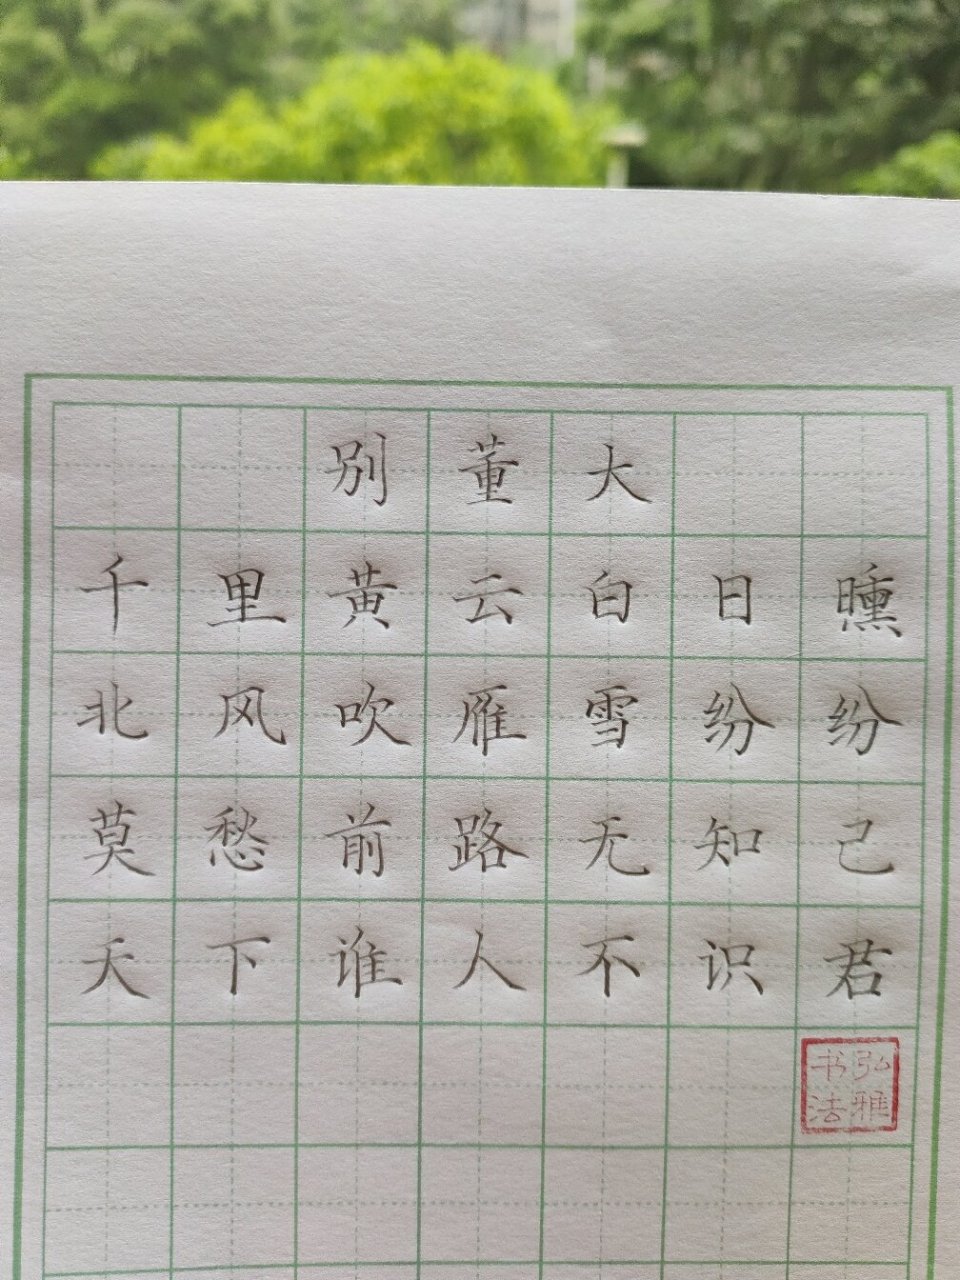 别董大
千里黄云白日曛
北风吹雁雪纷纷
莫愁前路无知己
天下谁人不识君
弘雅
书法